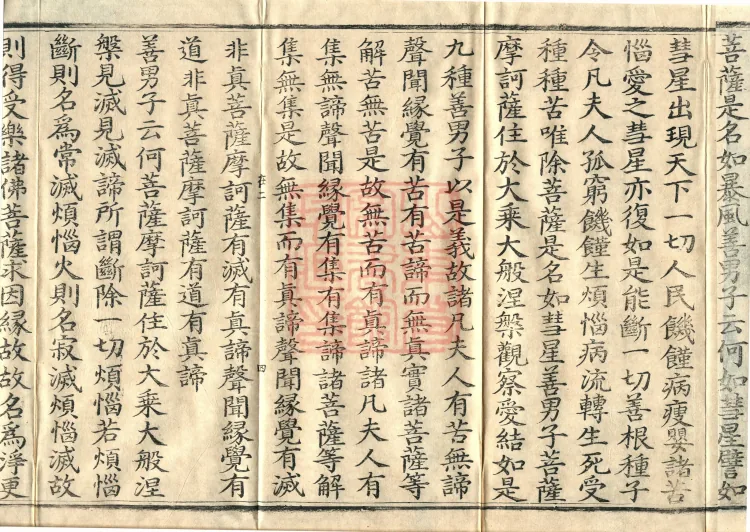 菩薩是名如暴風善男子云何如彗星譬如
彗星出現天下一切人民饑饉病瘦嬰諸苦
惱愛之彗星亦復如是能斷一切善根種子
令凡夫人孤窮饑饉生煩惱病流轉生死受
種種苦唯除菩薩是名如彗星善男子菩薩
摩訶薩住於大乘大般涅槃觀察愛結如是
九種善男子以是義故諸凡夫人有苦無諦
聲聞緣覺有苦有苦諦而無真實諸菩薩等
解苦無苦是故無苦而有真諦諸凡夫人有
集無諦聲聞緣覺有集有集諦諸菩薩等解
集無集是故無集而有真諦聲聞緣覺有滅
非真菩薩摩訶薩有滅有真諦聲聞緣覺有
道非真菩薩摩訶薩有道有真諦
善男子云何菩薩摩訶薩住於大乘大般涅
槃見滅見滅諦所謂斷除一切煩惱若煩惱
斷則名爲常滅煩惱火則名寂滅煩惱滅故
則得受樂諸佛菩薩求因緣故故名爲淨更